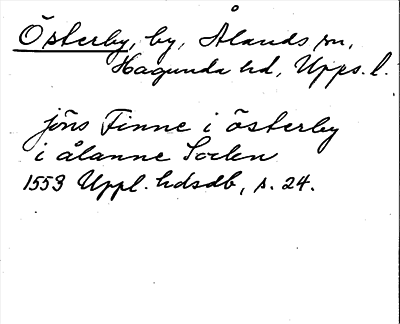 Österby, by, Ålands sn,
Hagunda hd, Upps. l.
jöns Finne i österby
i ålanne Soclen
1553 Uppl. hdsdb, s. 24.